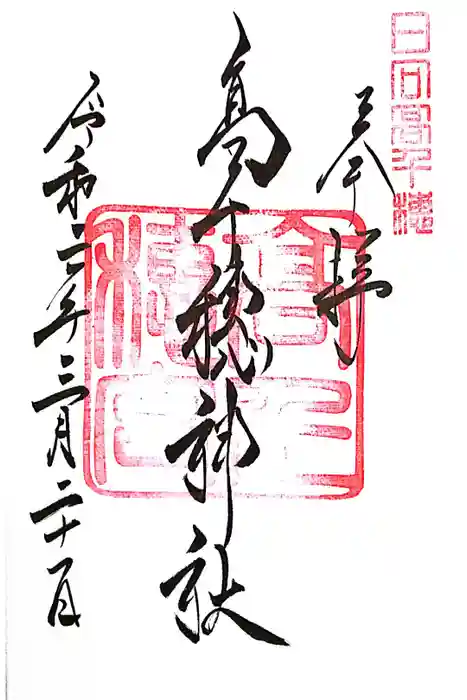 日向高千穂
奉拝
高千穂神社
令和二年三月二十日